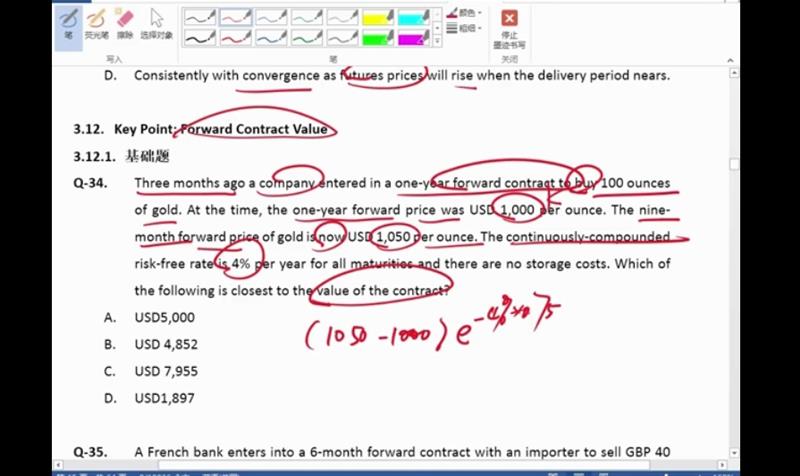 笔 荧光笔 擦除 选择对象
颜色
粗细
停止
墨迹书写
写入 笔 关闭
D. Consistently with convergence as futures prices will rise when the delivery period nears.
3.12. Key Point: Forward Contract Value
3.12.1. 基础题
Q-34. Three months ago a company entered in a one-year forward contract to buy 100 ounces
of gold. At the time, the one-year forward price was USD 1,000 per ounce. The nine-
month forward price of gold is now USD 1,050 per ounce. The continuously-compounded
risk-free rate is 4% per year for all maturities and there are no storage costs. Which of
the following is closest to the value of the contract?
(1050 - 1000) e
A. USD5,000
B. USD 4,852
C. USD 7,955
D. USD1,897
Q-35. A French bank enters into a 6-month forward contract with an importer to sell GBP 40